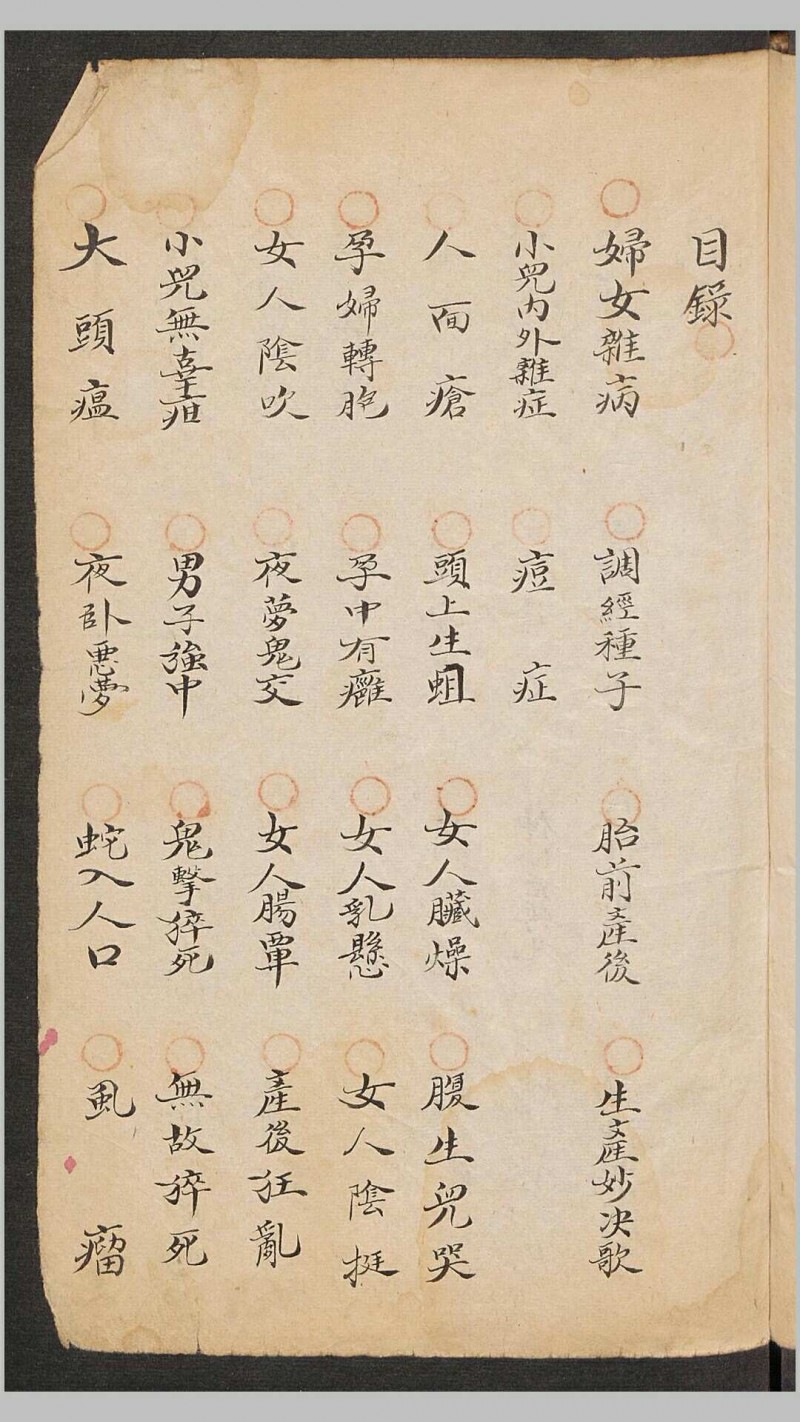 目錄
婦女雜病 調經種子 胎前產後 生產妙决歌
小兒内外雜症 痘症
人面瘡 頭上生蛆 女人臟燥 腹生兒哭
孕婦轉胞 孕中有癰 女人乳懸 女人陰挺
女人陰吹 夜夢鬼交 女人腸覃 產後狂亂
小兒無辜疳 男子強中 鬼擊猝死 無故猝死
大頭瘟 夜卧惡夢 蛇入人口 虱瘤